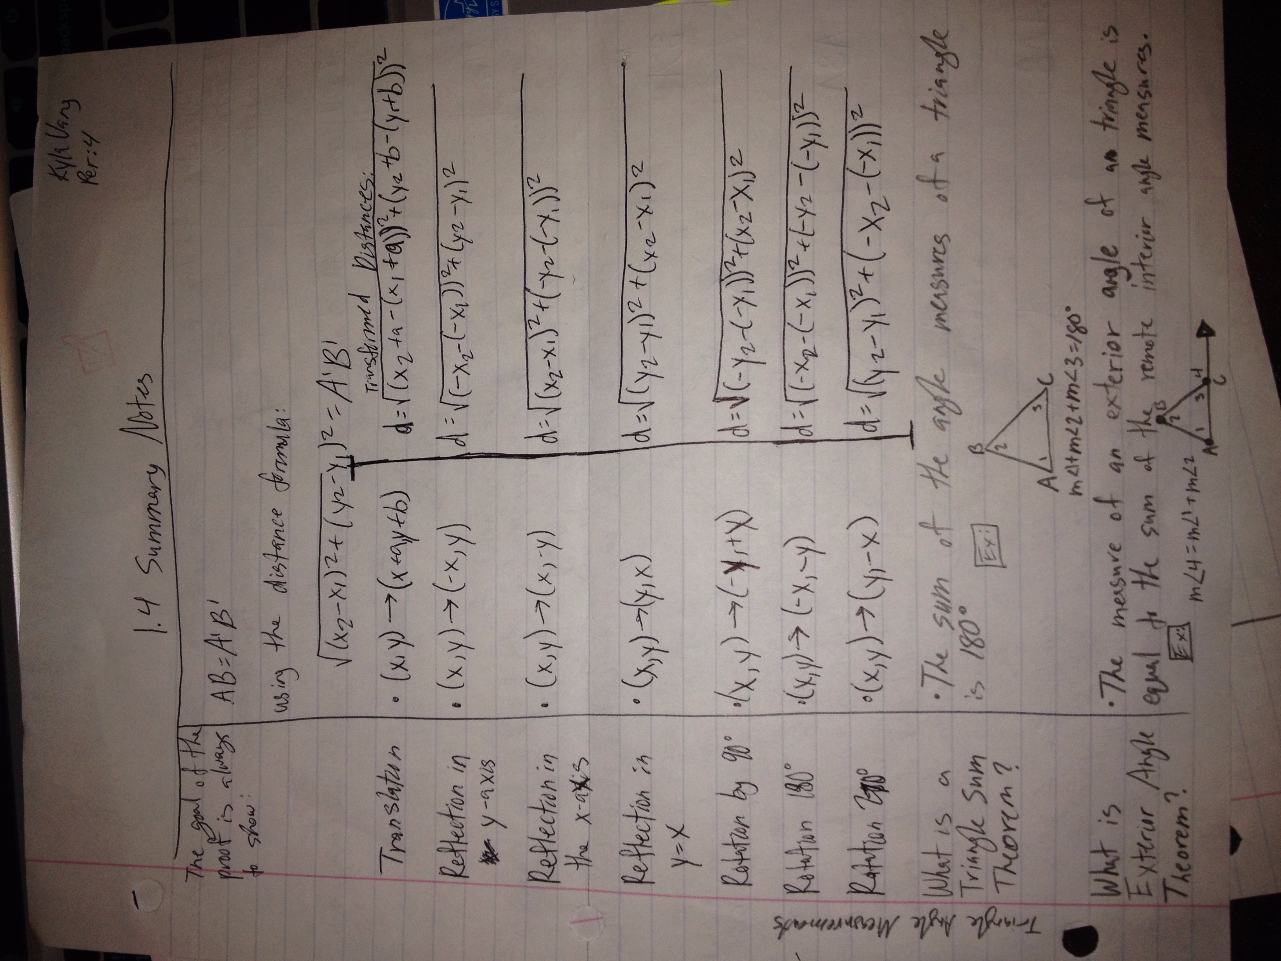 Per: 4
1.4 Summary Notes
The goal of the
proof is always
to show:
AB=A'B'
using the distance formula:
√(x₂-x₁)²+(y₂-y₁)² = A'B'
Transformed Distances:
Translation • (x,y)→(x+a,y+b) d=√(x₂+a-(x₁+a))²+(y₂+b-(y₁+b))²
Reflection in • (x,y)→(-x,y) d=√(-x₂-(-x₁))²+(y₂-y₁)²
y-axis
Reflection in • (x,y)→(x,-y) d=√(x₂-x₁)²+(-y₂-(-y₁))²
the x-axis
Reflection in • (x,y)→(y,x) d=√(y₂-y₁)²+(x₂-x₁)²
y=x
Rotation by 90° • (x,y)→(-y,+x) d=√(-y₂-(-y₁))²+(x₂-x₁)²
Rotation 180° • (x,y)→(-x,-y) d=√(-x₂-(-x₁))²+(-y₂-(-y₁))²
Rotation 270° • (x,y)→(y,-x) d=√(y₂-y₁)²+(-x₂-(-x₁))²
Triangle Angle Measurements
What is a
Triangle Sum
Theorem?
• The sum of the angle measures of a triangle
is 180°
Ex:
B
2
A 1 3 C
m∠1+m∠2+m∠3=180°
What is
Exterior Angle
Theorem?
• The measure of an exterior angle of an triangle is
equal to the sum of the remote interior angle measures.
Ex:
m∠4=m∠1+m∠2
B
2
A 1 3 4
C